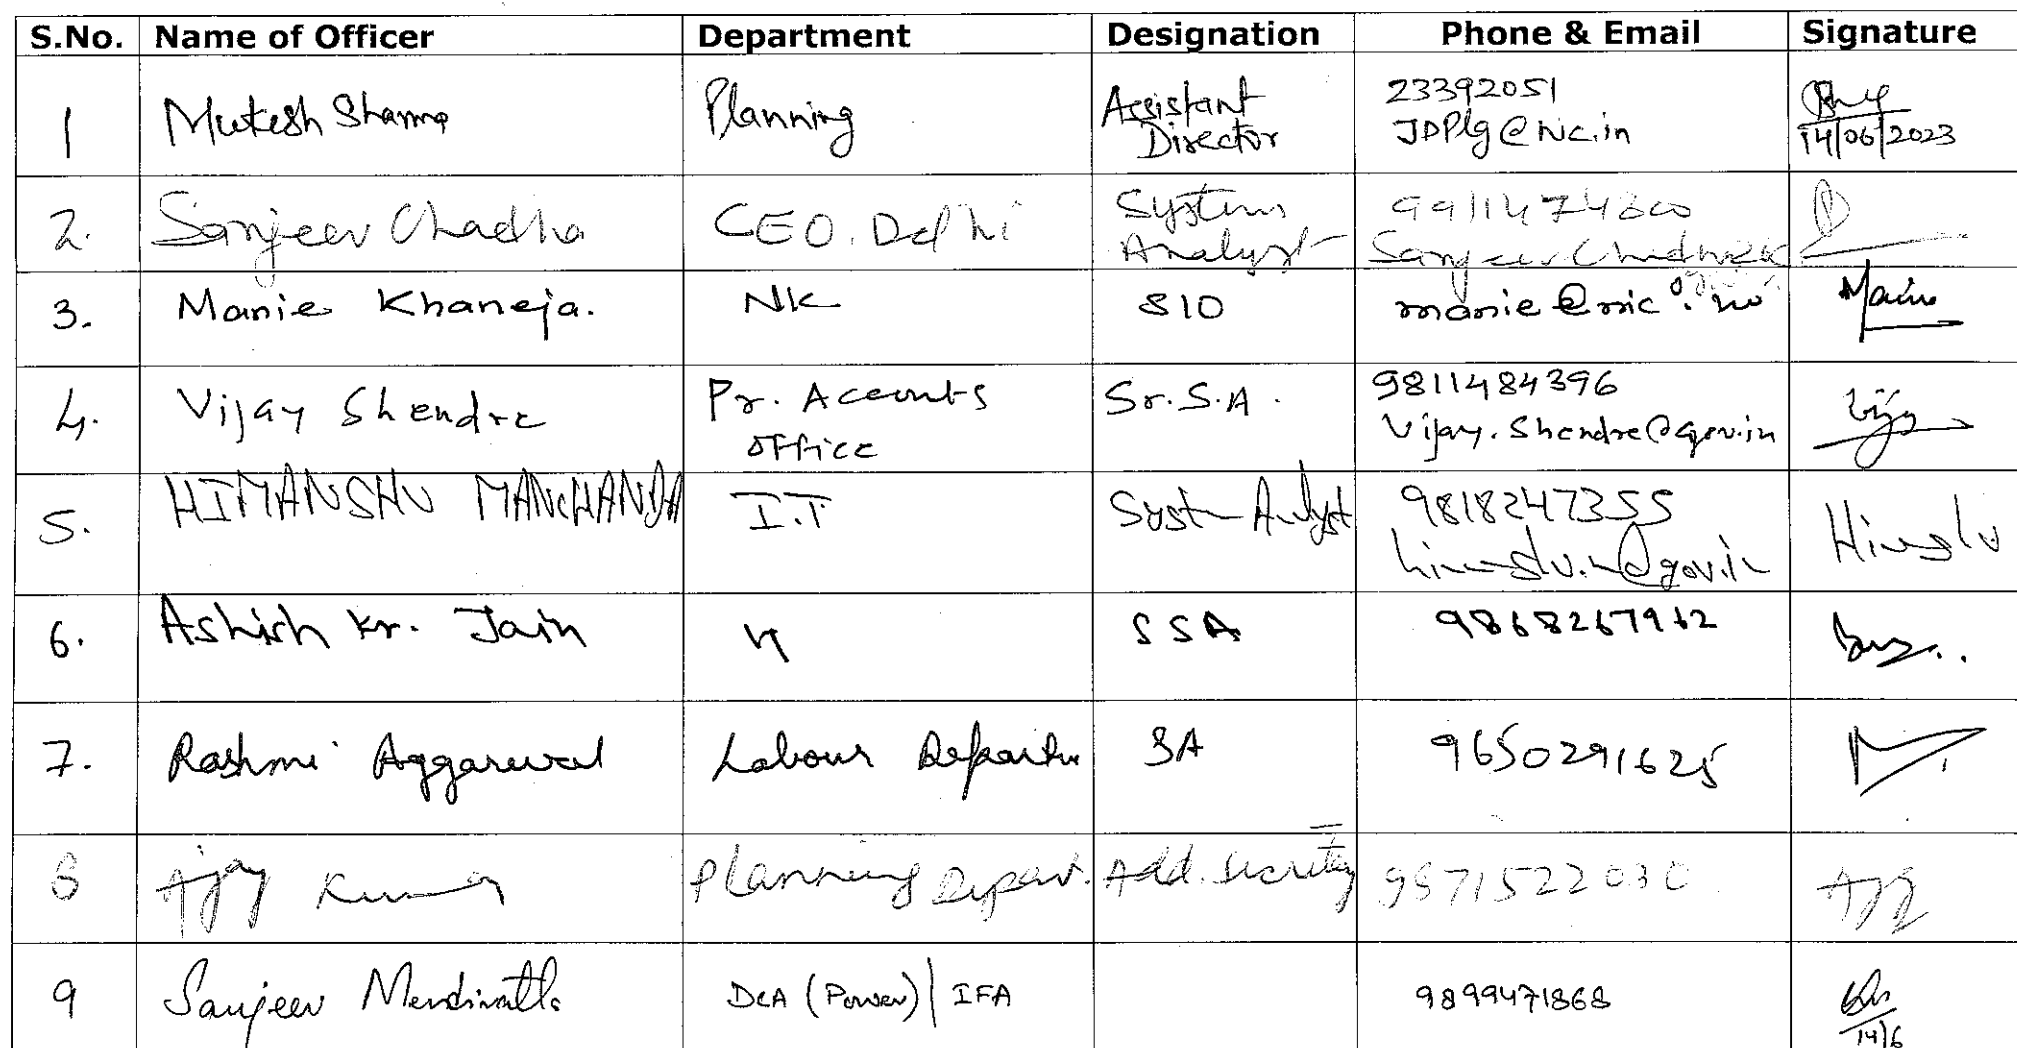 S.No. Name of Officer Department Designation Phone & Email Signature
1 Mukesh Sharma Planning Assistant Director 23392051 JDPlg@nic.in 14/06/2023
2. Sanjeev Chadha CEO. Delhi System Analyst
3. Manie Khaneja. NIC SIO manie@nic.in
4. Vijay Shendre Pr. Accounts office Sr.S.A. 9811484396 Vijay.Shendre@gov.in Vijay
5. HIMANSHU MANCHANDA I.T System Analyst 9818247355
6. Ashish Kr. Jain " SSA 9868267962
7. Rashmi Aggarwal Labour SA 9650291625
8 Ajay Kumar Planning Depart. Add. Secretary 9571522030
9 Sanjeev Mendiratta DCA (Power) | IFA 9899471868 14/6